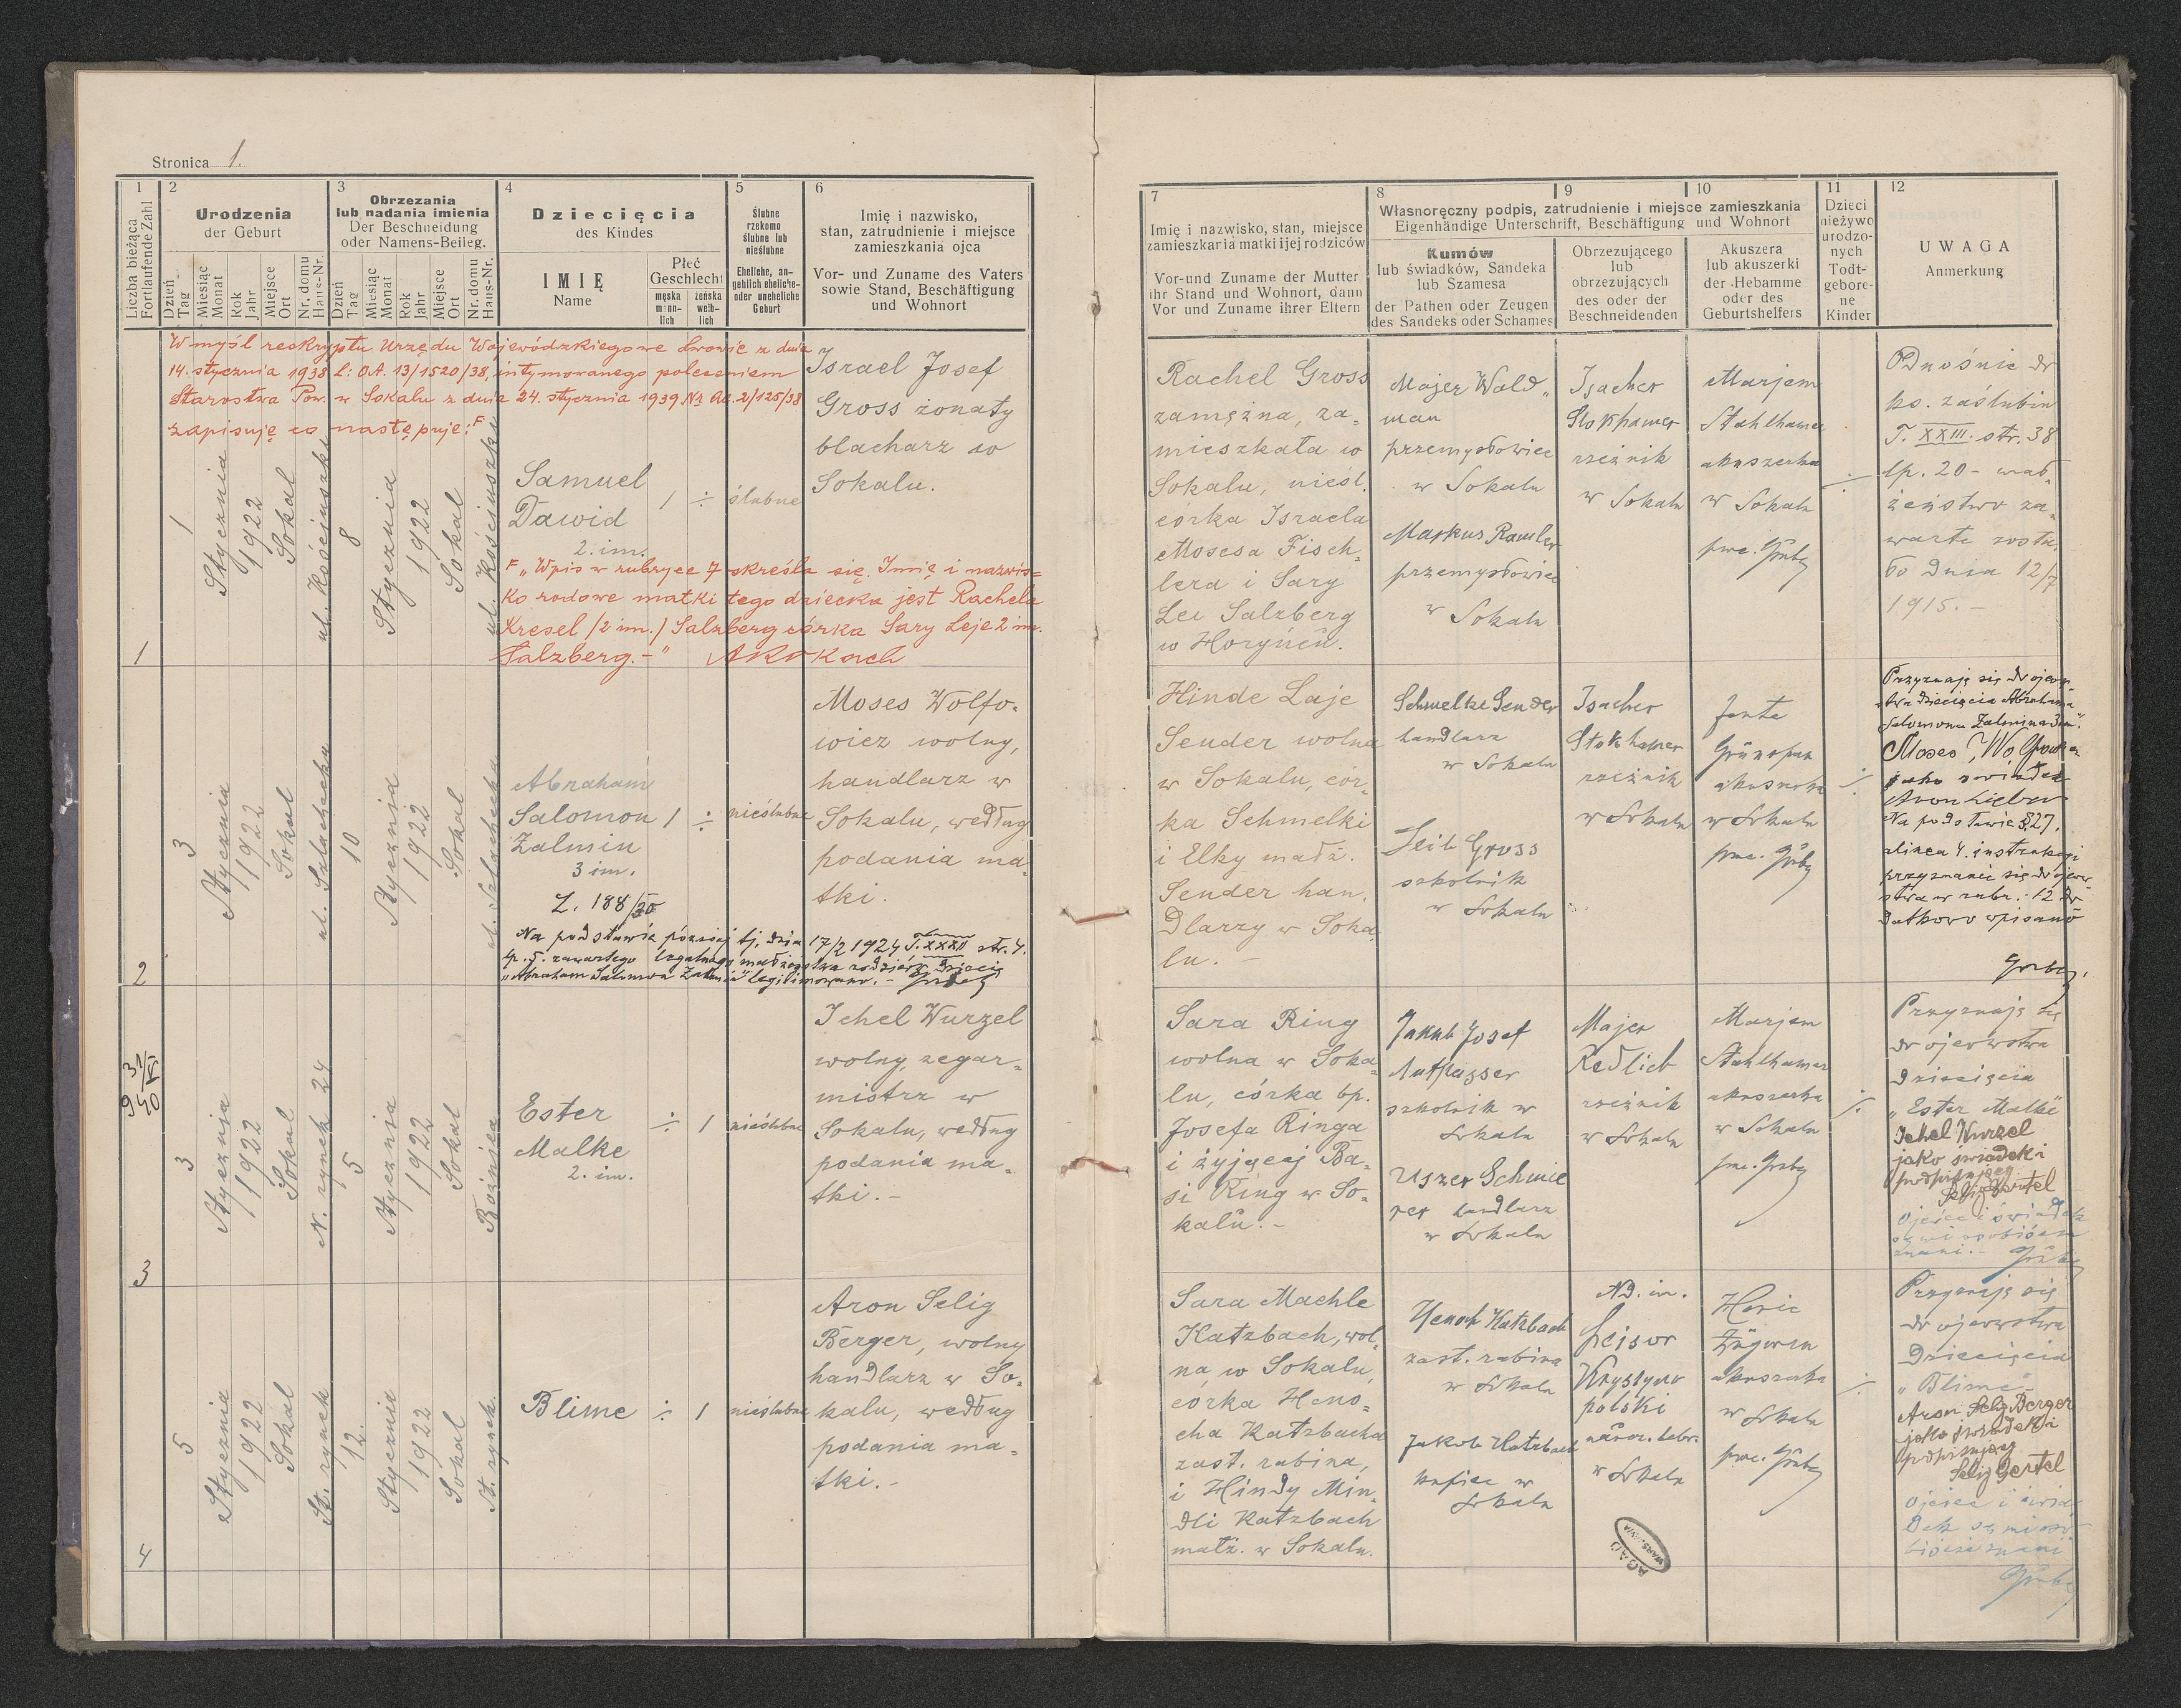 Stronica 1.
1
2
3
4
5
6
Liczba bieżąca
Fortlaufende Zahl
Urodzenia
der Geburt
Dzień
Tag
Miesiąc
Monat
Rok
Jahr
Miejsce
Ort
Nr. domu
Haus-Nr.
Obrzezania
lub nadania imienia
Der Beschneidung
oder Namens-Beileg.
Dzień
Tag
Miesiąc
Monat
Rok
Jahr
Miejsce
Ort
Nr. domu
Haus-Nr.
Dziecięcia
des Kindes
IMIĘ
Name
Płeć
Geschlecht
męska
männ-
lich
żeńska
weib-
lich
Ślubne
rzekomo
ślubne lub
nieślubne
Eheliche, an-
geblich eheliche-
oder uneheliche
Geburt
Imię i nazwisko,
stan, zatrudnienie i miejsce
zamieszkania ojca
Vor- und Zuname des Vaters
sowie Stand, Beschäftigung
und Wohnort
W myśl reskryptu Urzędu Wojewódzkiego we Lwowie z dnia
14. stycznia 1938 L: OA. 13/1520/38, intymowanego poleceniem
Starostwa Pow. w Sokalu z dnia 24. stycznia 1939 Nr. Ad. 2/125/38
zapisuję co następuje: F
1
1
Stycznia
1922
Sokal
ul. Kościuszki
8
Stycznia
1922
Sokal
ul. Kościuszki
Samuel
Dawid
2. im.
1
÷
ślubne
Israel Josef
Gross żonaty
blacharz w
Sokalu.
F „Wpis w rubryce 7 skreśla się. Imię i nazwis=
ko rodowe matki tego dziecka jest Rachela
Kresel /2 im./ Salzberg córka Sary Leje 2 im.
Salzberg.-"
2
3
Stycznia
1922
Sokal
ul. Szlachecka
10
Stycznia
1922
Sokal
ul. Szlachecka
Abraham
Salomon
Zalmin
3 im.
L. 188/30
1
÷
nieślubne
Moses Wolfo-
wicz wolny,
handlarz w
Sokalu, według
podania ma-
tki.
Na podstawie później tj. dnia 17/2 1924 T. XXXII str. 4.
lp. 5. zawartego legalnego małżeństwa rodziców dziecię
„Abraham Salomon Zalmin" legitymowano. -
31/V
940
3
3
Stycznia
1922
Sokal
N. rynek 24
5
Stycznia
1922
Sokal
Bożnica
Ester
Malke
2. im.
÷
1
nieślubne
Ichel Wurzel
wolny, zegar-
mistrz w
Sokalu, według
podania ma-
tki.-
4
5
Stycznia
1922
Sokal
St. rynek
12.
Stycznia
1922
Sokal
St. rynek.
Blime
÷
1
nieślubne
Aron Selig
Berger, wolny
handlarz w So-
kalu, według
podania ma-
tki.-
7
8
9
10
11
12
Imię i nazwisko, stan, miejsce
zamieszkania matki i jej rodziców
Vor-und Zuname der Mutter
ihr Stand und Wohnort, dann
Vor und Zuname ihrer Eltern
Własnoręczny podpis, zatrudnienie i miejsce zamieszkania
Eigenhändige Unterschrift, Beschäftigung und Wohnort
Kumów
lub świadków, Sandeka
lub Szamesa
der Pathen oder Zeugen
des Sandeks oder Schames
Obrzezującego
lub
obrzezujących
des oder der
Beschneidenden
Akuszera
lub akuszerki
der Hebamme
oder des
Geburtshelfers
Dzieci
nieżywo
urodzo-
nych
Todt-
gebore-
ne
Kinder
UWAGA
Anmerkung
Rachel Gross
zamężna, za-
mieszkała w
Sokalu, nieśl.
córka Israela
Mosesa Fisch-
lera i Sary
Lei Salzberg
w Horyńcu.
Majer Wald-
man
przemysłowiec
w Sokalu
Markus Ramler
przemysłowiec
w Sokalu
Isacher
Stokhamer
rzeźnik
w Sokalu
Marjem
Stahlhamer
akuszerka
w Sokalu
÷
Odnośnie do
ks. zaślubin
T. XXIII. str. 38
lp. 20 - mał-
żeństwo za-
warte zosta-
ło dnia 12/7
1915. -
Hinde Laje
Sender wolna
w Sokalu, cór-
ka Schmelki
i Elky małż.
Sender han-
dlarzy w Soka-
lu. -
Schmelke Sender
handlarz
w Sokalu
Leib Gross
szkolnik
w Sokalu
Isacher
Stokhamer
rzeźnik
w Sokalu
Jente
Grünspan
akuszerka
w Sokalu
÷
Przyznaję się do ojcow-
stwa dziecięcia Abrahama
Salomona Zalmina 3 im".
Moses Wolfowicz
jako świadek
Na podstawie §27.
alinea 4. instrukcji
przyznanie się do ojcow-
stwa w rubr.: 12 do-
datkowo wpisano
Sara Ring
wolna w Soka-
lu, córka śp.
Josefa Ringa
i żyjącej Ba-
si Ring w So-
kalu.-
Jakub Josef
Aufpasser
szkolnik w
Sokalu
Uszer Schmie
rer handlarz
w Sokalu
Majer
Redlich
rzeźnik
w Sokalu
Marjem
Stahlhamer
akuszerka
w Sokalu
÷
Przyznaję się
do ojcowstwa
dziecięcia
„Ester Malke"
Ichel Wurzel
jako świadek i
podpisujący
Selig Gertel
Ojciec i świadek
są mi osobiście
znani. -
Sara Machle
Katzbach, wol-
na, w Sokalu,
córka Heno-
cha Katzbacha
zast. rabina,
i Hindy Min-
dli Katzbach
małż. w Sokalu.
Henoch Katzbach
zast. rabina
w Sokalu
Jakob Katzbach
kupiec w
Sokalu
ND. im.
Lejsor
w Sokalu
akuszerka
w Sokalu
÷
Przyznaję się
do ojcowstwa
dziecięcia
„Blime"
Aron Selig Berger
jako świadek i
podpisujący
Selig Gertel
Ojciec i świa-
dek są mi oso-
biście znani
AGAD
WARSZAWA